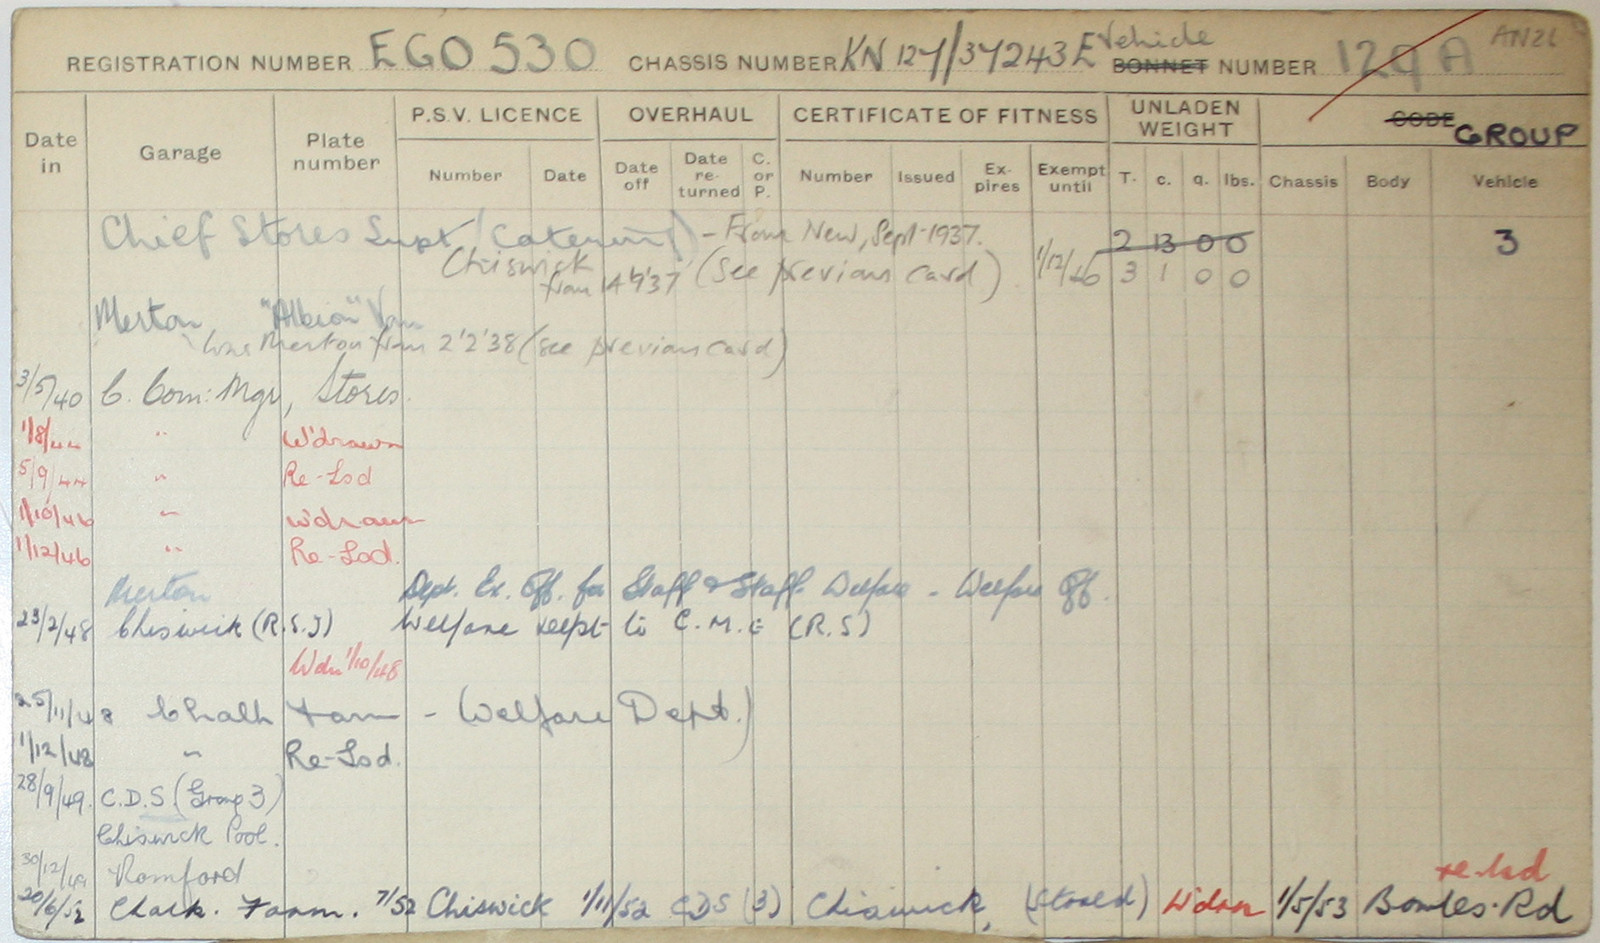 REGISTRATION NUMBER EGO 530 CHASSIS NUMBER KN 127/37243E Vehicle BONNET NUMBER 129 A AN26
Date in Garage Plate number P.S.V. LICENCE OVERHAUL CERTIFICATE OF FITNESS UNLADEN WEIGHT CODE GROUP
Number Date Date off Date re-turned C. or P. Number Issued Ex-pires Exempt until T. C. Q. lbs. Chassis Body Vehicle
Chief Stores Supt (Catering) - From New, Sept 1937. 2 13 0 0 3
Chiswick from 14'9'37 (See previous card) 1/12/46 3 1 0 0
Merton "Albion" Van
Merton from 2'2'38 (see previous card)
3/5/40 C. Com: Mgr, Stores.
1/8/44 " W'drawn
5/9/44 " Re-Lsd
1/10/46 " W'drawn
1/12/46 " Re-Lsd.
Merton Dept. Ex. Off. for Staff & Staff Welfare - Welfare Off.
23/2/48 Chiswick (R.S.J) Welfare xcept to C.M.E (R.S)
Wdn 1/10/48
25/11/48 Chalk Farm - (Welfare Dept.)
1/12/48 " Re-Lsd.
28/9/49. C.D.S (Group 3)
Chiswick Pool.
30/12/49 Romford
re-lsd
20/6/52 Chalk. Farm. 7/52 Chiswick 1/11/52 CDS (3) Chiswick, (Stored) W'drn 1/5/53 Bowles Rd